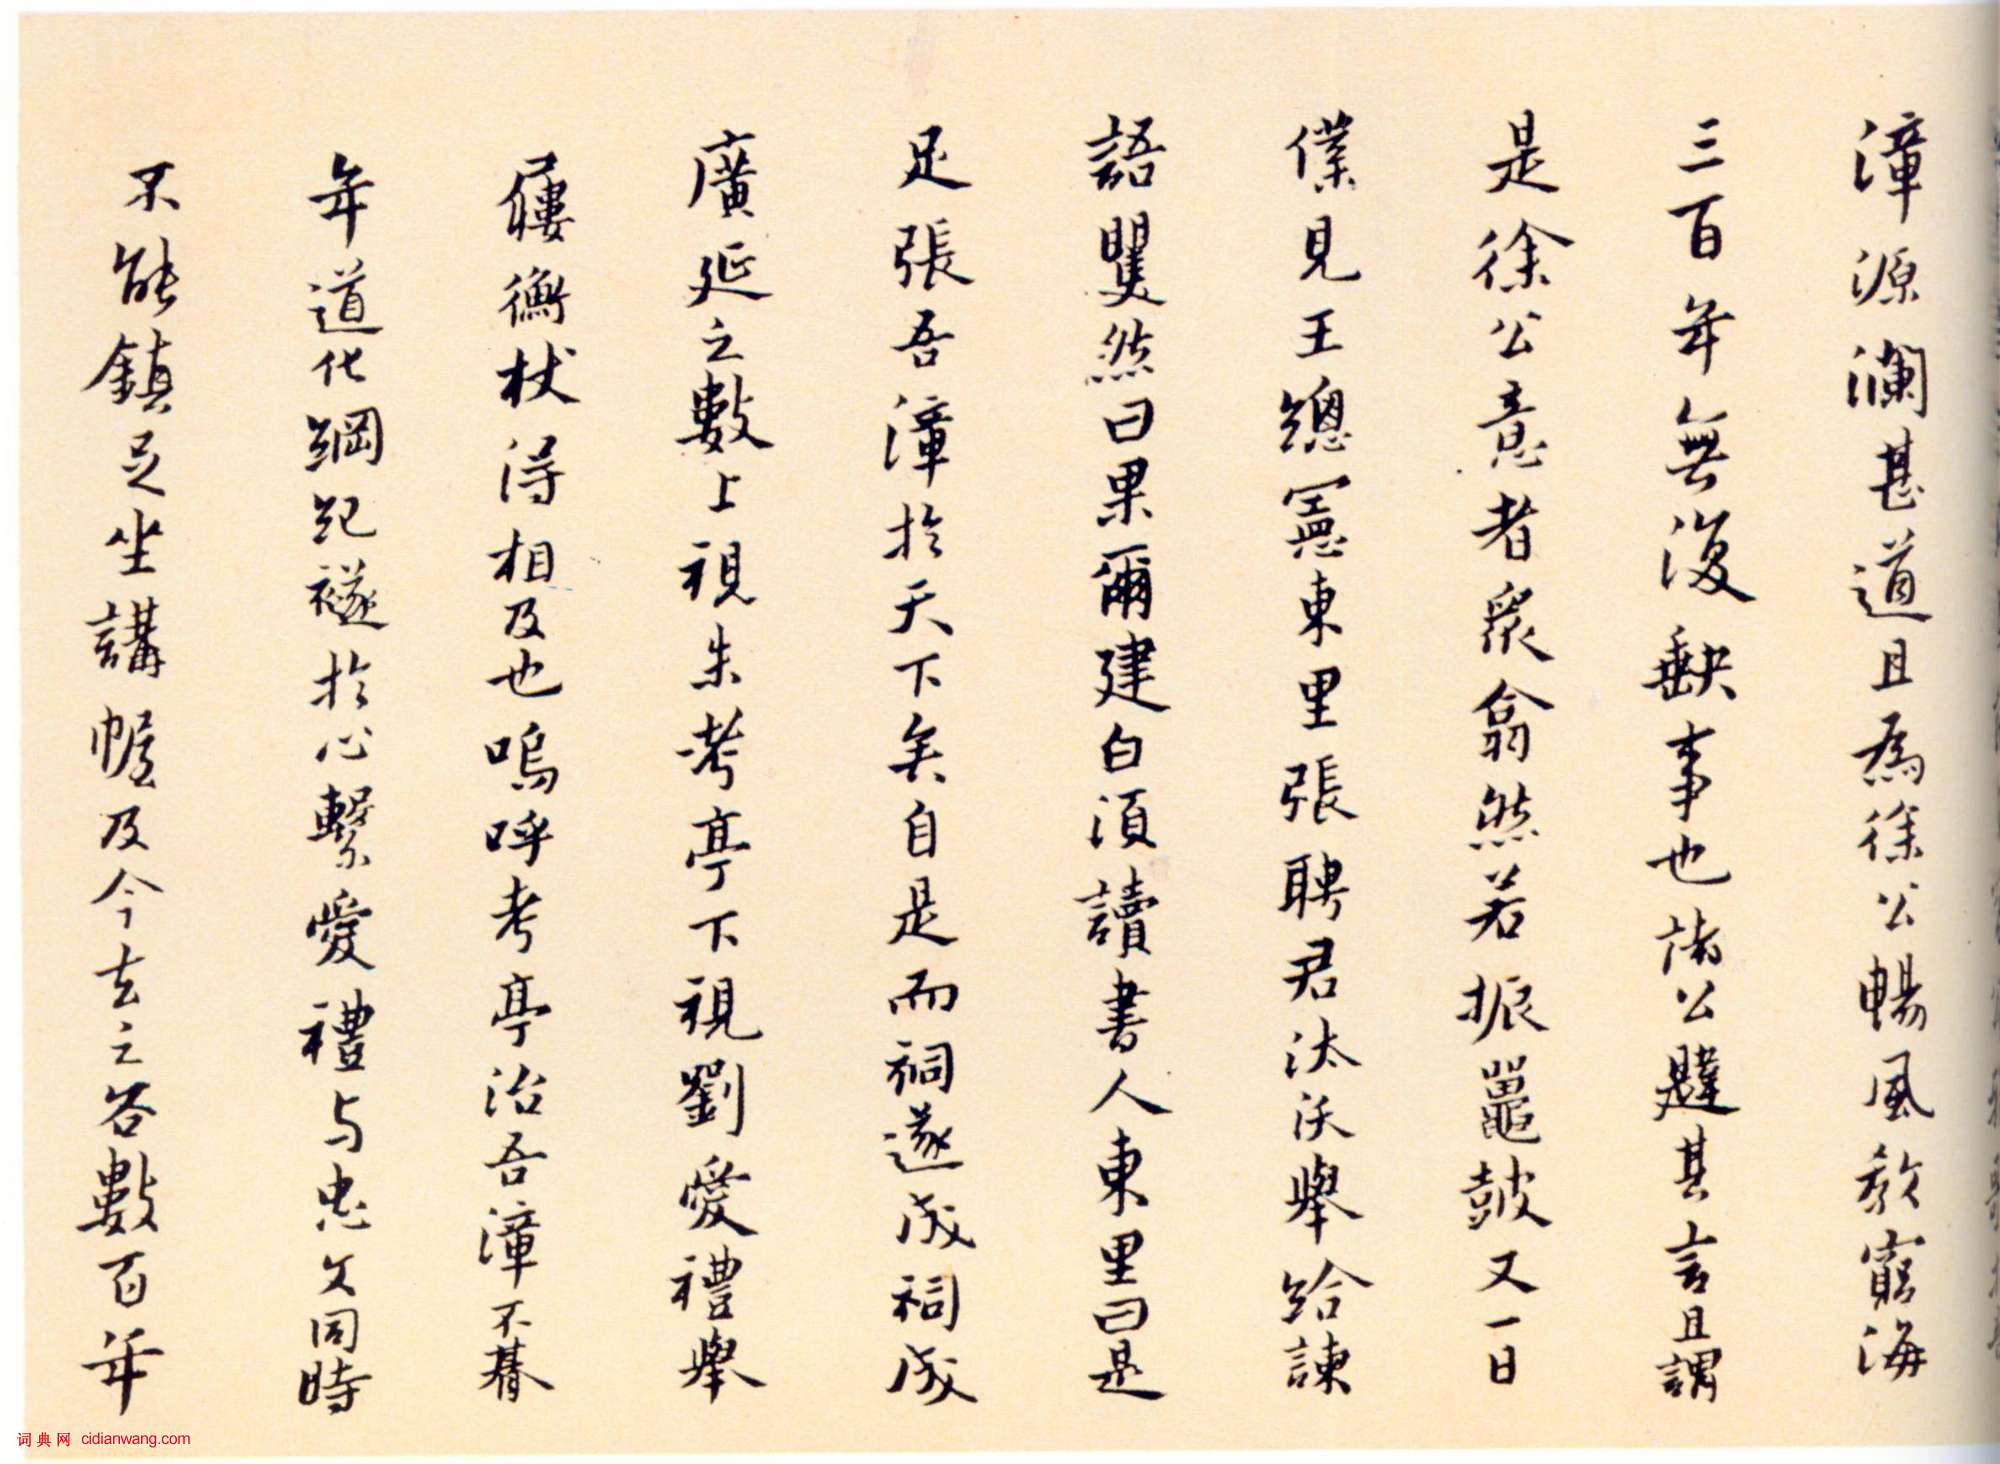 漳源瀾甚道且為徐公暢風教窮海
三百年無復缺事也諸公韙其言且謂
是徐公意者衆翕然若振鼍鼓又一日
僕見王總憲東里張聘君汰沃舉給諫
語瞿然曰果爾建白須讀書人東里曰是
足張吾漳於天下矣自是而祠遂成祠成
廣延之數上視朱考亭下視劉愛禮舉
屨衡杖得相及也嗚呼考亭治吾漳不朞
年道化綱紀襚於心繫愛禮与忠文同時
不能鎮足坐講幄及今去之各數百年
词典网 cidianwang.com